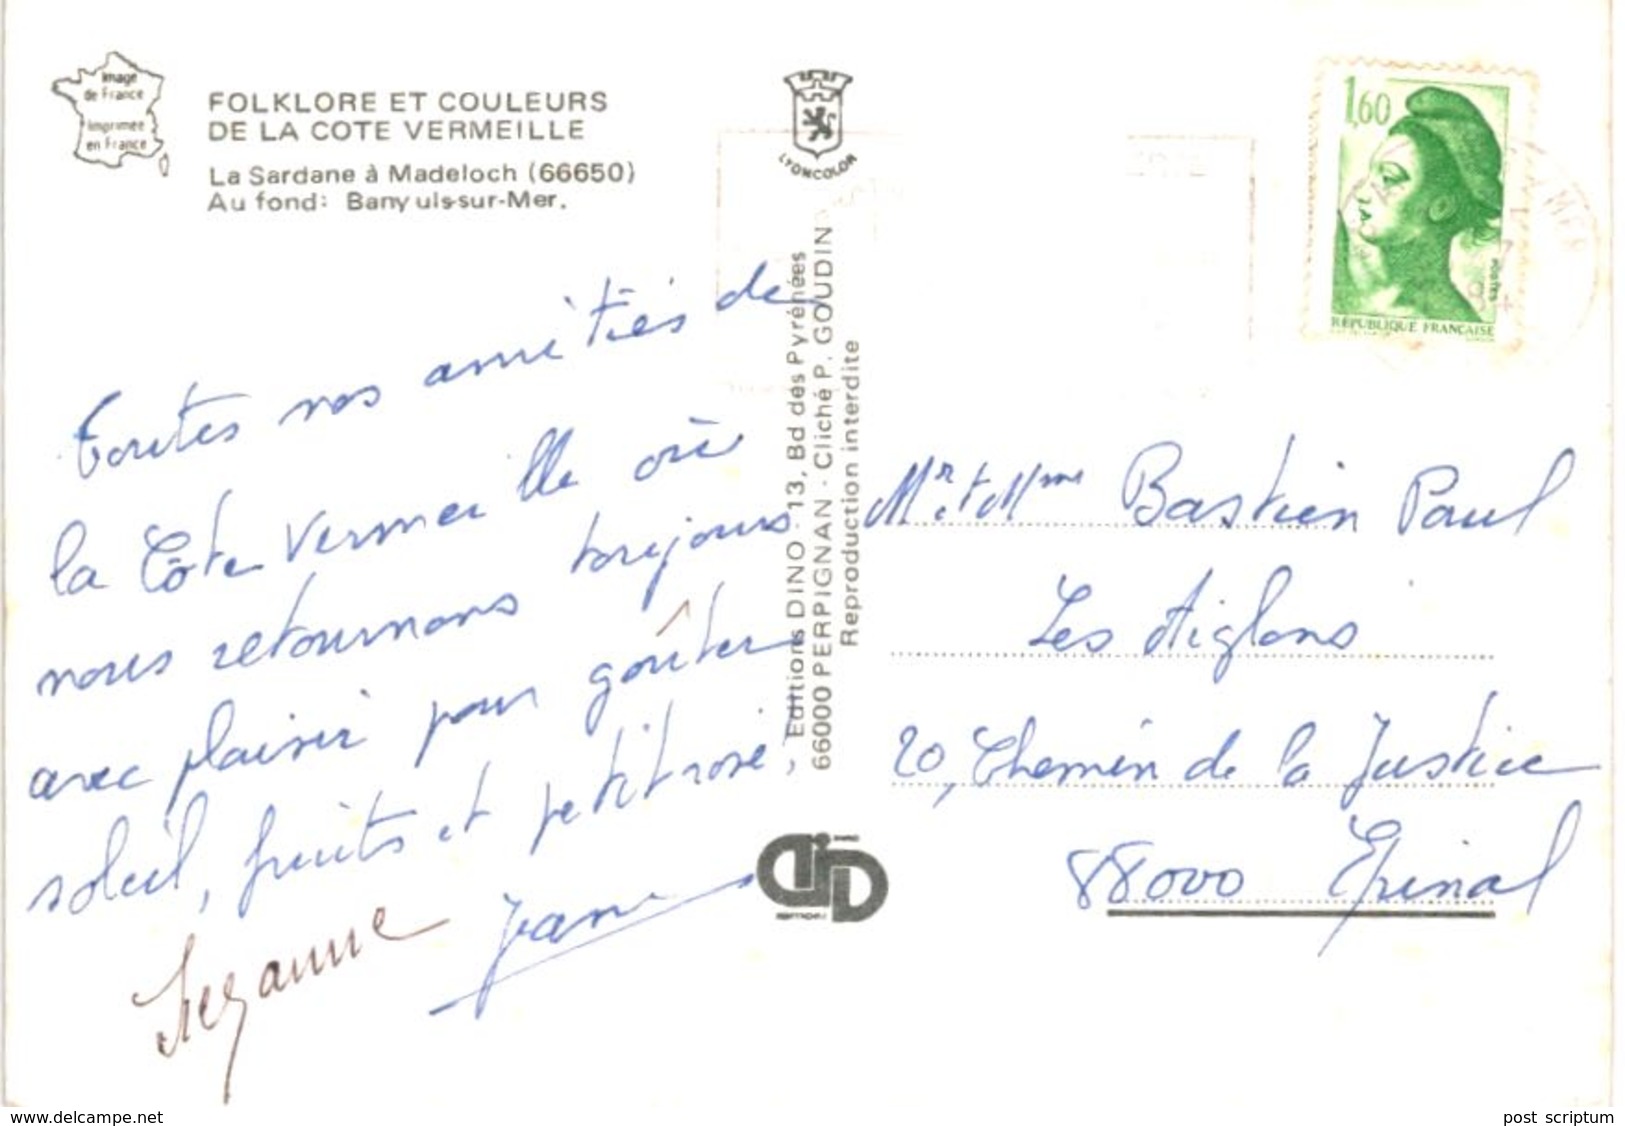 Image
de France
Imprimée
en France
FOLKLORE ET COULEURS
DE LA COTE VERMEILLE
La Sardane à Madeloch (66650)
Au fond: Banyuls-sur-Mer.
LYONCOLOR
1,60
POSTES
RÉPUBLIQUE FRANÇAISE
Toutes nos amitiés de
la Côte Vermeille où
nous retournons toujours
avec plaisir pour goûter
soleil, fruits et petit rosé,
Suzanne
Editions DINO - 13, Bd des Pyrénées
66000 PERPIGNAN - Cliché P. GOUDIN
Reproduction interdite
Mr. et Mme Bastien Paul
Les Aiglons
20, Chemin de la Justice
88000 Epinal
www.delcampe.net
post scriptum